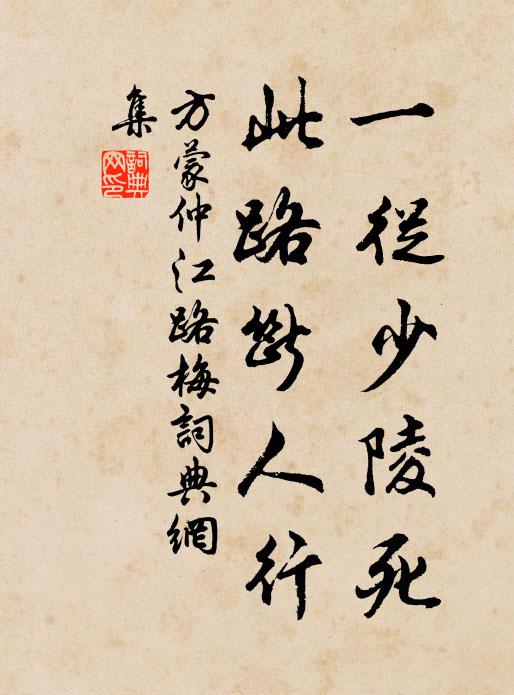 一從少陵死
此路斷人行
方蒙仲江路梅詞典網
集
詞典
网印